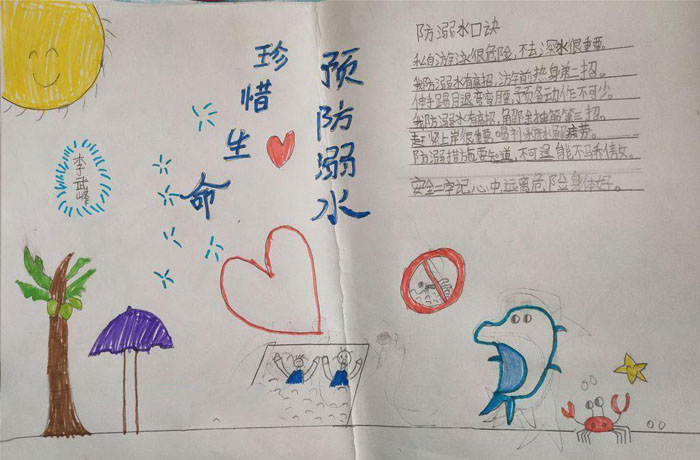 珍惜生命
预防溺水
李武峰
防溺水口诀
私自游泳很危险,不去深水很重要。
我防溺水有高招,游年前热身第一招。
伸手踢目退弯弯腰,预备动作不可少。
我防溺水有高招,第三招。
赶紧上岸很重要,喝
防溺措施要知道,不可逞能不
安全二字记心中远离危险身体好。